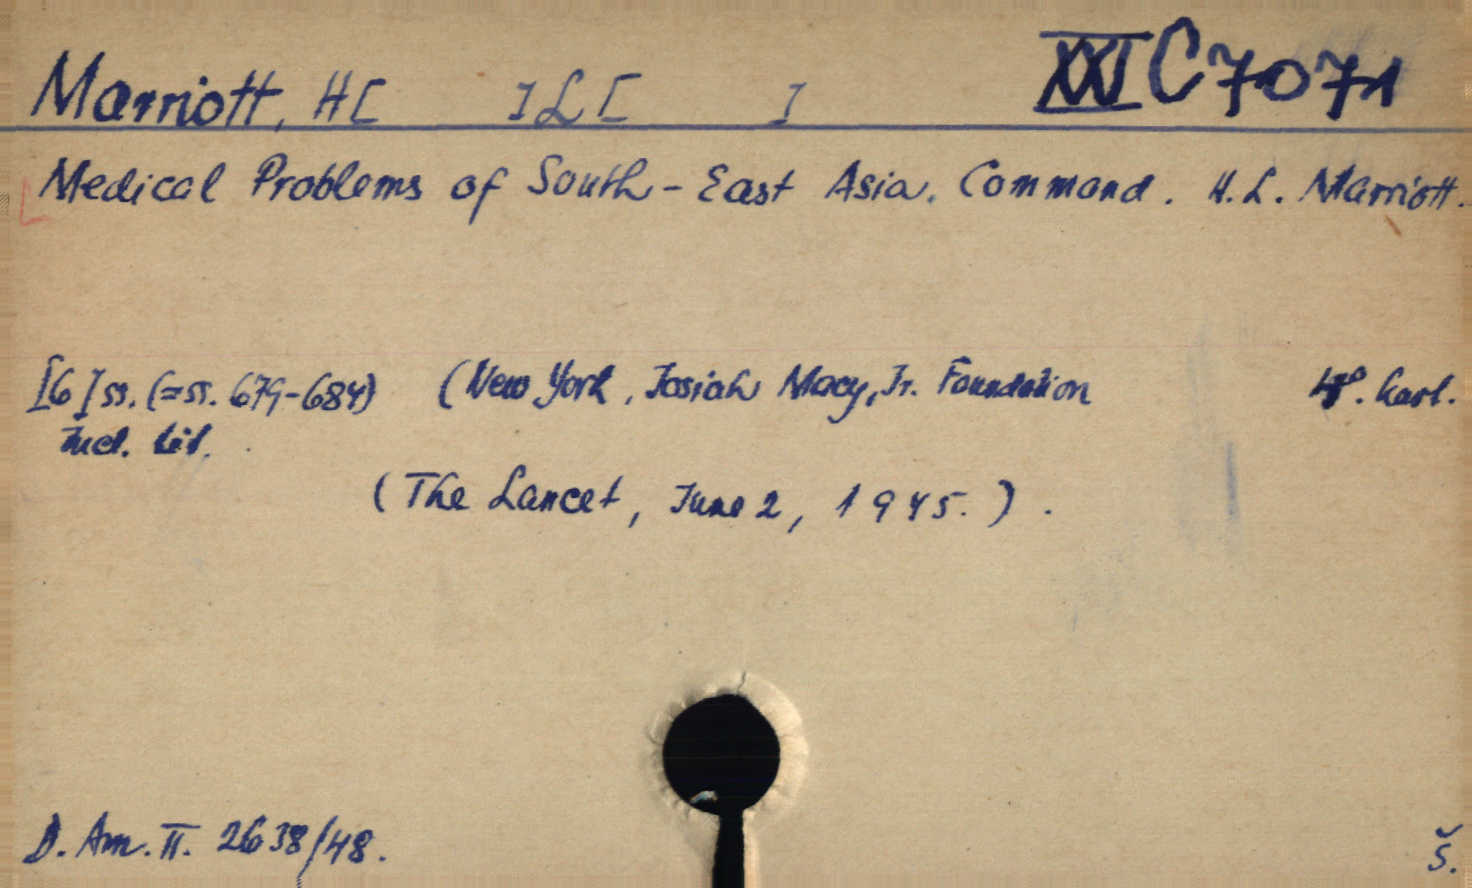 Marriott, H[ ]L[ ] XXI C 7071
Medical Problems of South-East Asia. Command. H. L. Marriott.
[6] ss. (=ss. 679-684) (New York, Josiah Macy, Jr. Foundation 4°. Kart.
Incl. lit.
(The Lancet, June 2, 1945.).
D. Am. II. 2638/48. Š.